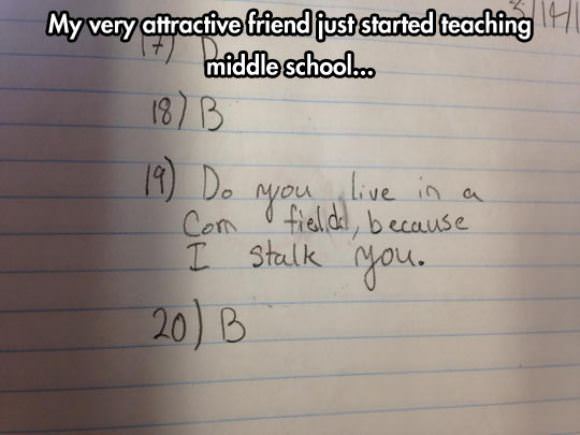 My very attractive friend just started teaching
middle school...
17) D
18) B
19) Do you live in a
Corn field, because
I stalk you.
20) B